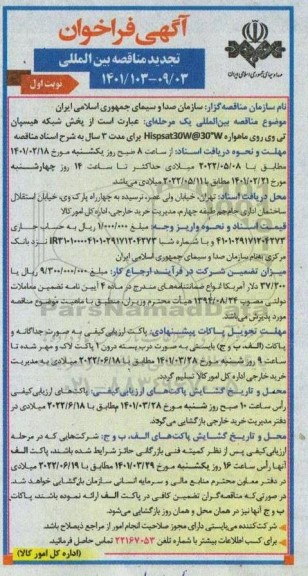 صدا و سیمای جمهوری اسلامی ایران
آگهی فراخوان
تجدید مناقصه بین المللی
۱۴۰۱/۱۰۳-۰۹/۰۳
نوبت اول
نام سازمان مناقصه گزار: سازمان صدا و سیمای جمهوری اسلامی ایران
موضوع مناقصه بین‌المللی یک مرحله‌ای: عبارت است از پخش شبکه هیسپان
تی وی روی ماهواره Hispsat30W@30°W برای مدت ۳ سال به شرح اسناد مناقصه
مهلت و نحوه دریافت اسناد: از ساعت ۸ صبح روز یکشنبه مورخ ۱۴۰۱/۰۲/۱۸
مطابق با ۲۰۲۲/۰۵/۰۸ میلادی حداکثر تا ساعت ۱۴ روز چهارشنبه
مورخ ۱۴۰۱/۰۲/۲۱ مطابق با ۲۰۲۲/۰۵/۱۱ میلادی می‌باشد
محل دریافت اسناد: تهران، خیابان ولی عصر، نرسیده به چهارراه پارک وی، خیابان استقلال
ساختمان اداری جام جم طبقه چهارم، مدیریت خرید خارجی، اداره کل امور کالا
قیمت اسناد و نحوه واریز وجه: مبلغ ۱/۰۰۰/۰۰۰ ریال به حساب جاری
۴۱۰۱۰۲۹۱۷۱۲۰۴۲۷۳ و با شماره شبا IR310100004101029171204273 نزد بانک
مرکزی بنام سازمان صدا و سیمای جمهوری اسلامی ایران
میزان تضمین شرکت در فرآیند ارجاع کار: مبلغ ۹/۳۰۰/۰۰۰/۰۰۰ ریال یا
۳۷/۲۰۰ دلار آمریکا انواع ضمانتنامه‌های مندرج در ماده ۴ آیین نامه تضمین معاملات
دولتی مصوب ۱۳۹۴/۰۸/۲۴ هیأت محترم وزیران، منطبق با ماهیت موضوع مناقصه
مورد پذیرش می‌باشد
مهلت تحویل پاکات پیشنهادی: پاکت ارزیابی کیفی به صورت جداگانه و
پاکات (الف، ب و ج) بایستی به صورت دربسته درون ۱ پاکت لاک و مهر شده تا
ساعت ۹ روز شنبه مورخ ۱۴۰۱/۰۳/۲۸ مطابق با ۲۰۲۲/۰۶/۱۸ میلادی به مدیریت
خرید خارجی اداره کل امور کالا تسلیم گردد.
محل و تاریخ گشایش پاکت‌های ارزیابی کیفی: پاکت‌های ارزیابی کیفی
رأس ساعت ۱۰ صبح روز شنبه مورخ ۱۴۰۱/۰۳/۲۸ مطابق با ۲۰۲۲/۶/۱۸ میلادی در
دفتر مدیریت خرید خارجی بازگشایی می‌گردد.
محل و تاریخ گشایش پاکت‌های الف، ب و ج: شرکت‌هایی که در مرحله
ارزیابی کیفی از نظر کمیته فنی بازرگانی حائز شرایط شده باشند، پاکت الف
آنها رأس ساعت ۱۶ روز یکشنبه مورخ ۱۴۰۱/۰۳/۲۹ مطابق با ۲۰۲۲/۰۶/۱۹ میلادی
در دفتر معاون محترم منابع مالی و سرمایه انسانی سازمان بازگشایی خواهد شد.
در صورتی که مناقصه‌گران تضمین کافی در پاکت الف ارائه نموده باشند، پاکات
ب و ج آنها نیز در همان محل و همان روز بازگشایی می‌شود.
شرکت‌کننده می‌بایستی دارای مجوز صلاحیت انجام امور از مراجع ذیصلاح باشد.
برای کسب اطلاعات بیشتر با شماره تلفن ۲۲۱۶۷۰۵۳ تماس حاصل فرمائید.
(اداره کل امور کالا)